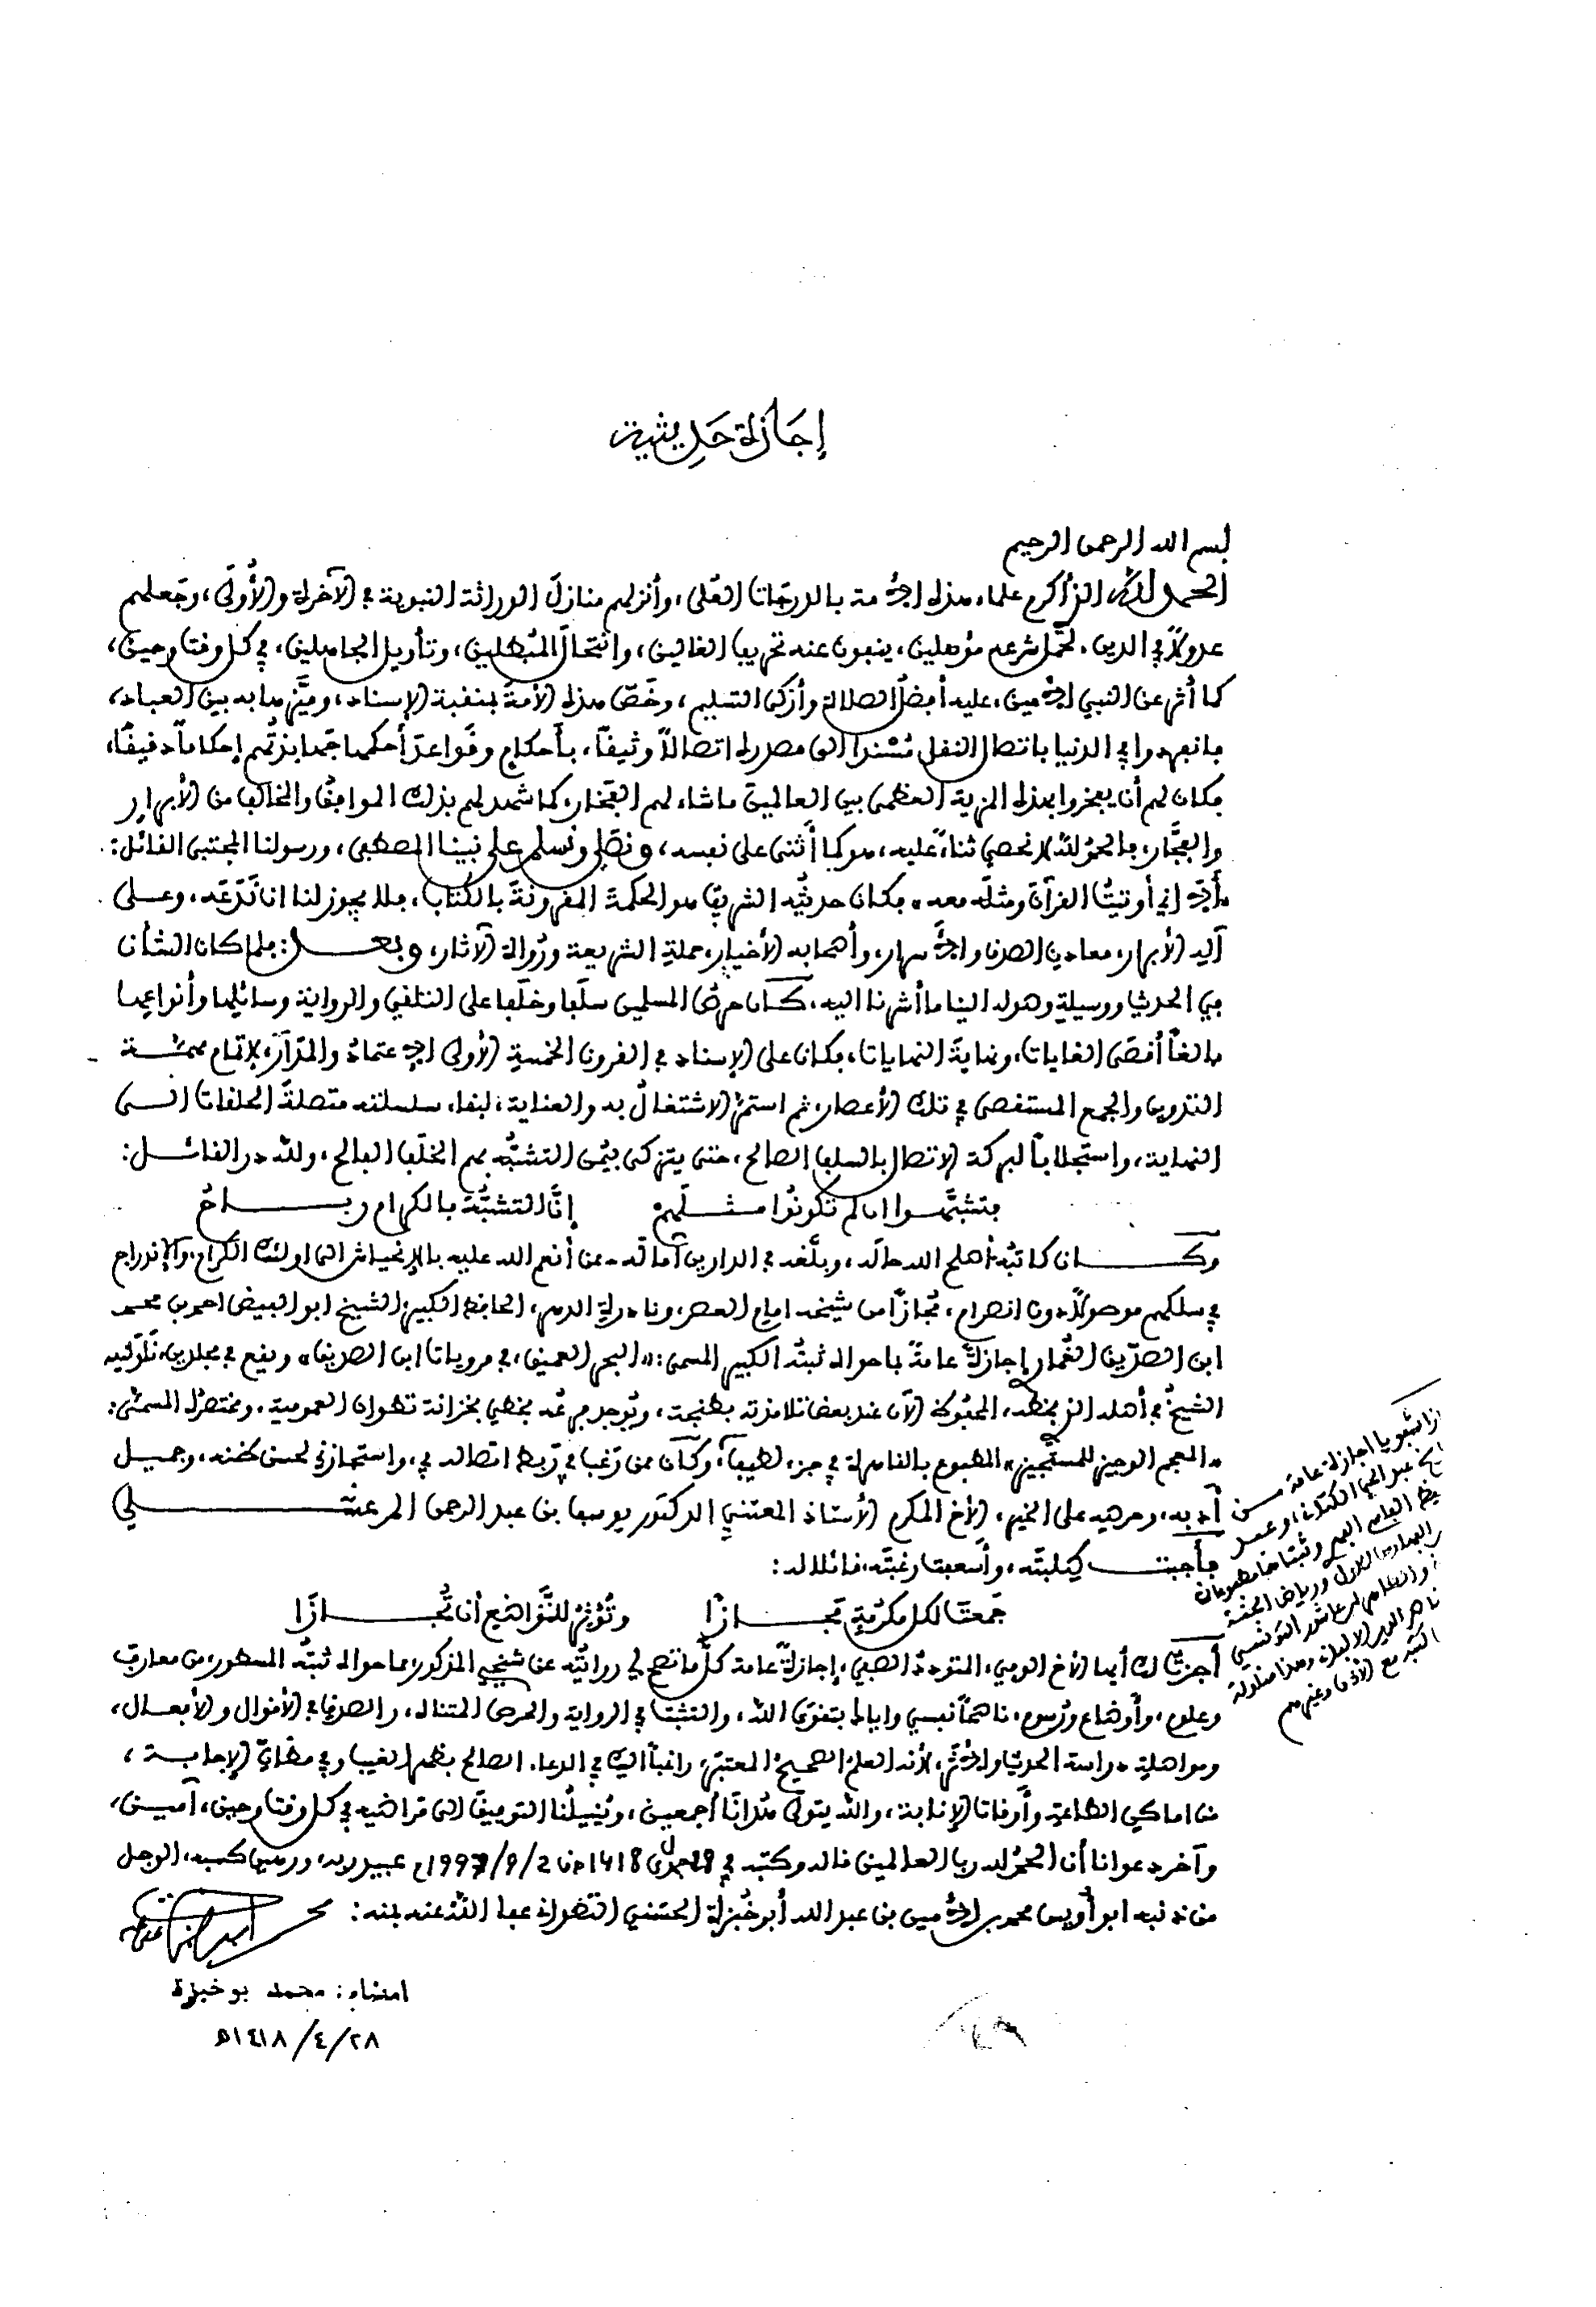 إجازة حديثية
بسم الله الرحمن الرحيم
الحمد لله الذي أكرم علماء هذه الأمة بالدرجات العُلى، وأنزلهم منازلَ الوراثة النبوية في الآخرة والأُولَى، وجَعلهم
عدولاً في الدين، لحمل شرعه مؤهلين، ينفون عنه تحريف الغالين، وانتحالَ المُبطلين، وتأويل الجاهلين، في كل وقت وحين،
كما أُثر عن النبي الأمين، عليه أفضلُ الصلاة وأزكى التسليم، وخَصّ هذه الأمةَ بمنقبة الإسناد، وميَّزها به بين العباد،
فانفردوا في الدنيا باتصال النقل مُسْنَداً إلى مصدره اتصالاً وثيقاً، بأحكام وقَواعدَ أحكمها جَهابذتُهم إحكاماً دقيقاً،
فكان لهم أن يفخروا بهذه المزية العظمى بين العالمين ما شاء لهم الفَخار، كما شهد لهم بذلك الموافقُ والمخالف من الأبرار
والفجَّار، فالحمدُ لله لا نحصي ثناءً عليه، هو كما أَثنى على نفسه، ونصَلي ونسلم على نبينا المصطفى، ورسولنا المجتبى القائل:
«ألا إني أوتيتُ القرآنَ ومثلَه معه» فكان حديثُه الشريف هو الحكمةَ المقرونةَ بالكتاب، فلا يجوز لنا أن نَدَعَه، وعلى
آله الأبرار، معادن الصدق والأسرار، وأصحابه الأخيار، حملةِ الشريعة ورُواة الآثار، وبعد: فلما كان الشأن
في الحديث ووسيلةِ وصوله إلينا ما أشرنا إليه، كان حرصُ المسلمين سلَفا وخلَفا على التلقي والرواية وسائلها وأنواعها
بالغاً أقصَى الغايات، ونهايةَ النهايات، فكان على الإسناد في القرون الخمسةِ الأولى الاعتمادُ والمَدَار، لإتمام مهمة
التدوين والجمع المستقصى في تلك الأعصار، ثم استمرّ الاشتغالُ به والعناية، لبقاء سلسلته متصلةَ الحلقات إلى
النهاية، واستجلاباً لبركة الاتصال بالسلف الصالح، حتى يتزكى بيُمن التشبُّه بهم الخلَف الفالح، ولله در القائل:
فتشبَّهوا إن لم تكونُوا مثلَهم إنَّ التشبُّهَ بالكرام رباحُ
وكان كاتبُه أصلح الله حاله، وبلَّغه في الدارين آماله - ممن أنعم الله عليه بالإنحياش إلى أولئك الكرام، والاندراج
في سلكهم موصولاً دون انصرام، مُجازاً من شيخه إمام العصر، ونادرة الدهر، الحافظ الكبير: الشيخ أبو الفيض أحمد بن محمد
ابن الصدِّيق الغُماري إجازةً عامةً بما حواه ثبتُه الكبير المسمى: «البحر العميق، في مرويات ابن الصديق» ويقع في مجلدين،
الشيخُ في أصله الذي بخطه، المحفوظ الآن عند بعض تلامذته بطنجة، ويُوجد فرعُه بخطي بخزانة تطوان العمومية، ومختصرُه المسمَّى:
«المعجم الوجيز للمستجيز» المطبوع بالقاهرة في جزء لطيف، وكان ممن رَغب في رَبط اتصاله بي، واستجازني لحسن ظنه، وجميل
أدبه، وحرصه على الخير، الأخ المكرم الأستاذ المعتني الدكتور يوسف بن عبد الرحمن المرعشلي
فأجبتُ طَلِبتَه، وأسعفت رغبتَه، قائلا له:
جَمعتَ لكل مكرُمةٍ مَجازًا وتُؤثِرُ للتَّواضع أن تُجازَا
أجزتك أيها الأخ الوفي، المتودِّدُ الصفي، إجازةً عامة كلَّ ما تصح لي روايتُه عن شيخي المذكور، مما حواه ثبتُه المسطور، من معارفَ
وعلوم، وأوضاع ورُسوم، ناصحاً نفسي وإياك بتقوَى الله، والتثبت في الرواية والحرص المتناه، والصدق في الأقوال والأفعال،
ومواصلةِ دراسة الحديث والأثر، لأنه العلمُ الصحيحُ المعتبَر، راغباً إليك في الدعاء الصالح بظهر الغيب وفي مظانّ الإجابة،
من أماكن الطاعة وأوقات الإنابة، والله يتولَّى هُدانَا أجمعين، ويُنيلُنا التوفيقَ إلى مراضيه في كل وقت وحين، آمين،
وآخر دعوانا أن الحمدُ لله رب العالمين قاله وكتبه في 28 1418 هـ 1997/9/2م عبيد ربه، ورهين كسبه، الوجل
من ذنبه أبو أويس محمد بن الأمين بن عبد الله أبو خُبزة الحسَني التطواني عفا الله عنه بمنه:
إمضاء: محمد بو خبزة
٢٨/٤/١٤١٨هـ
إجازة عامة من
عبد الحي الكتاني، و